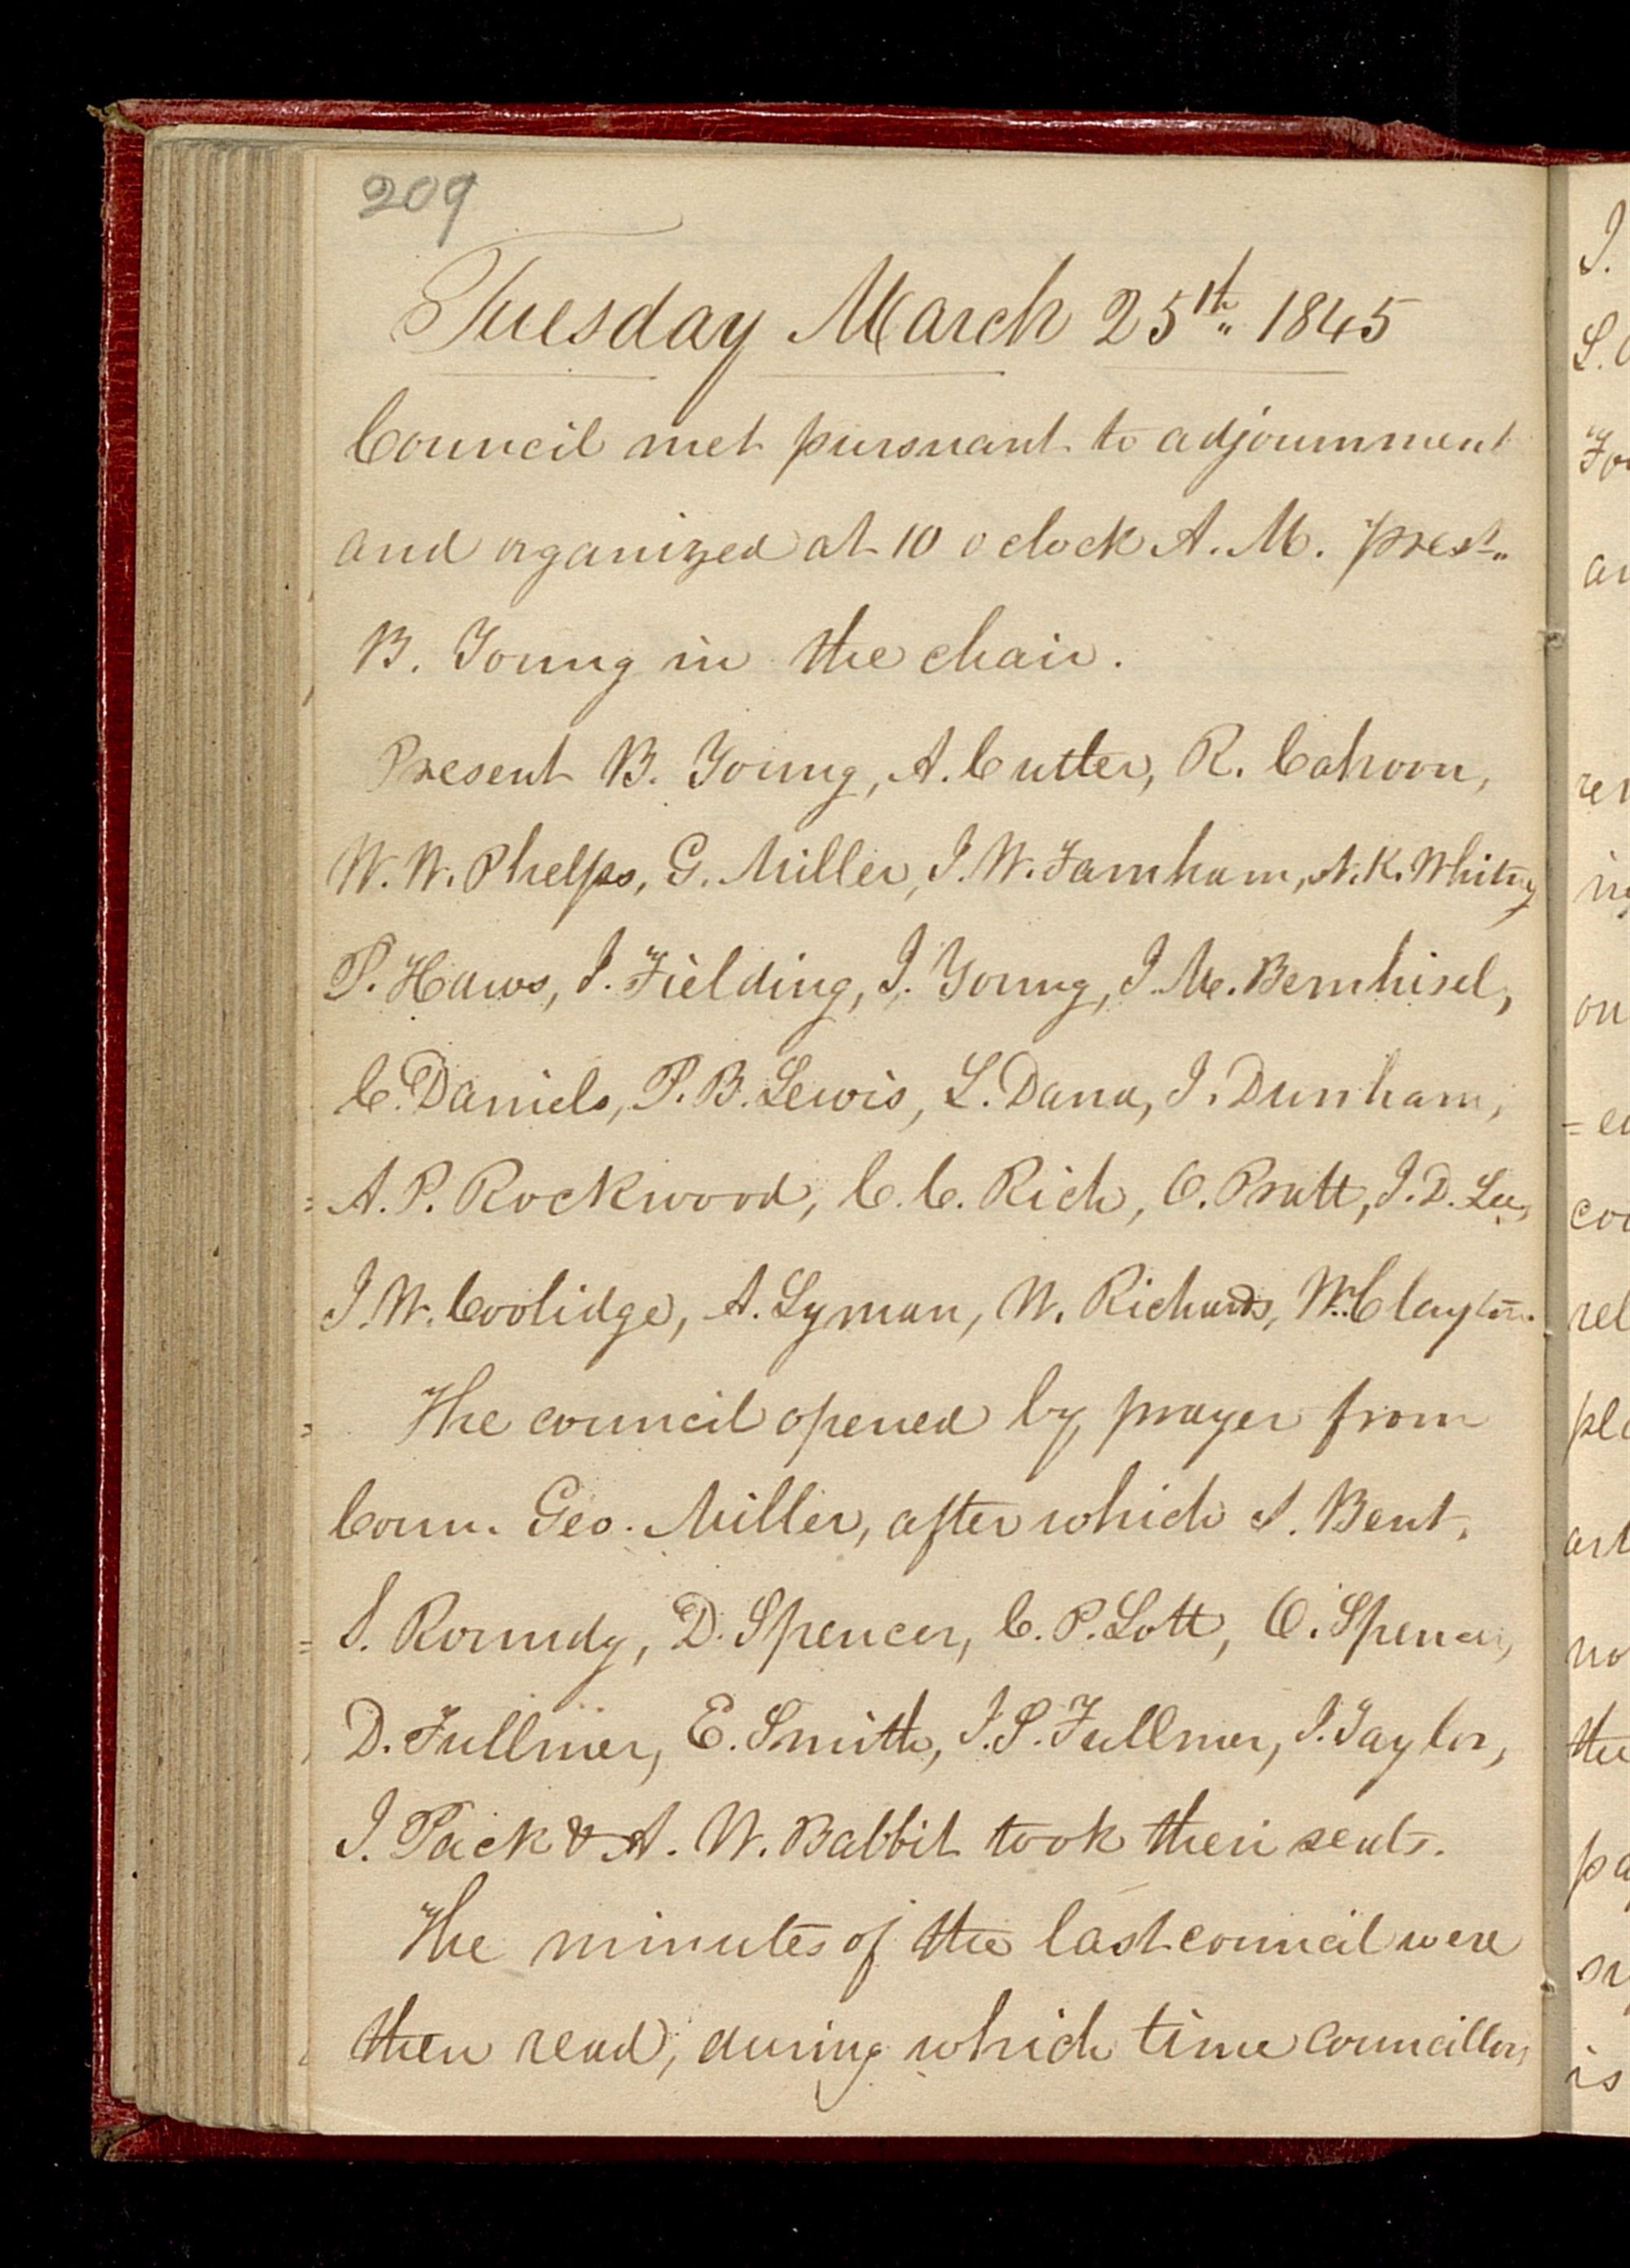 209
Tuesday March 25th 1845
Council met pursuant to adjournment
and organized at 10 o clock A. M. prest.
B. Young in the chair.
Present B. Young, A. Cutler, R. Cahoon,
W. W. Phelps, G. Miller, J. W. Farnham, N. K. Whitney
P. Haws, J. Fielding, J. Young, J. M. Bernhisel,
C. Daniels, P. B. Lewis, L. Dana, J. Dunham,
A. P. Rockwood, C. C. Rich, O. Pratt, J. D. Lee,
J. W. Coolidge, A. Lyman, W. Richards, Wm. Clayton.
The council opened by prayer from
Coun. Geo. Miller, after which S. Bent,
S. Roundy, D. Spencer, C. P. Lott, O. Spencer,
D. Fullmer, E. Smith, J. S. Fullmer, J. Taylor,
J. Pack & A. W. Babbit took their seats.
The minutes of the last council were
then read, during which time councillors